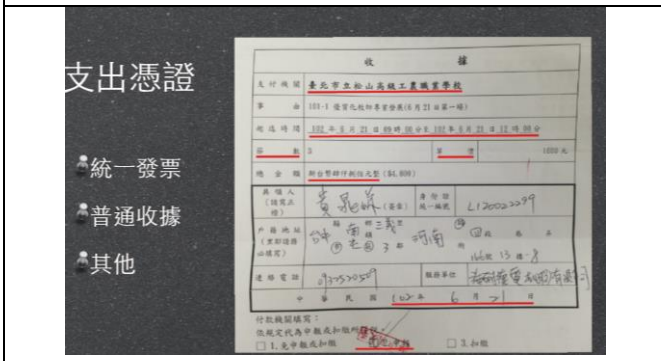 支出憑證
統一發票
普通收據
其他
收 據
支付機關 臺北市立松山高級工農職業學校
事 由 101-1 優質化教師專業發展(6月21日第一場)
起迄時間 102 年 6 月 21 日 09 時 00 分至 102 年 6 月 21 日 12 時 00 分
節 數 3 單 價 1600 元
總 金 額 新台幣肆仟捌佰元整 ($4,800)
具領人 (請寫正楷) (簽章) 身份證統一編號 L120022299
戶籍地址 (里鄰請務必填寫) 台中 縣 市 南 鄉 鎮 里 3 鄰 河南 路 段 巷 弄 號 13 樓-8
連絡電話 服務單位
中 華 民 國 102 年 6 月 21 日
付款機關填寫:
依規定代為申報或扣繳所得稅
□ 1.免申報或扣繳 □ 3.扣繳